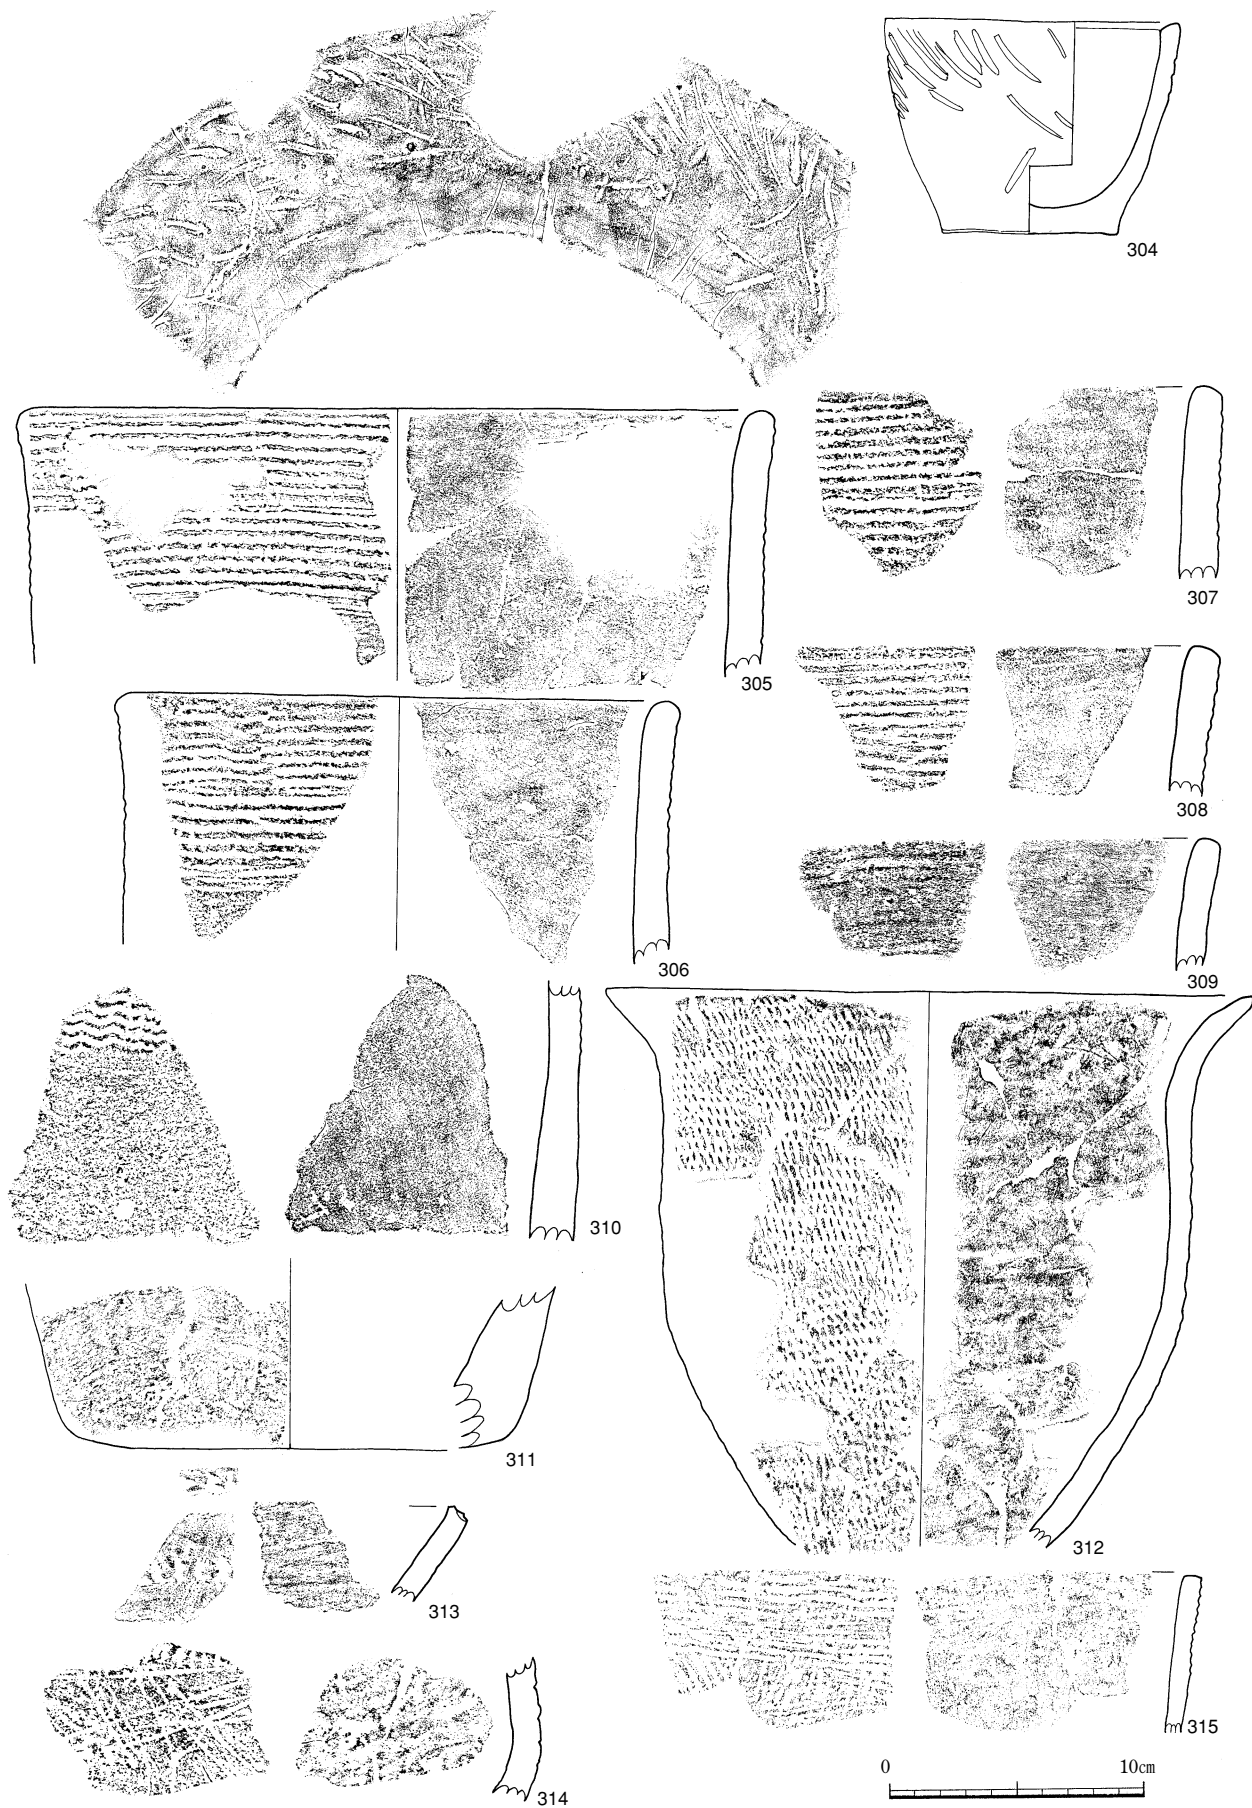 304
305
307
308
306
309
310
311
312
313
315
314
0 10cm